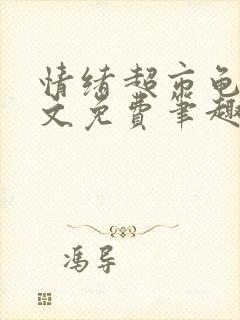 情绪超市龟
文免费笔趣
冯导